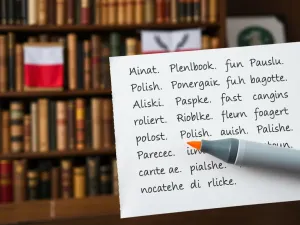 Ainat. Plenlbook. fun Pauslu.
Polish. Ponergaik fuh bagotte.
Aliski. Paspke. fast cangins
roliert. Rioblke. fleurn foagert
polost. Polish. auish. Palishe.
Parecec.
carite ae. pialshe.
nocatehe di rlicke.